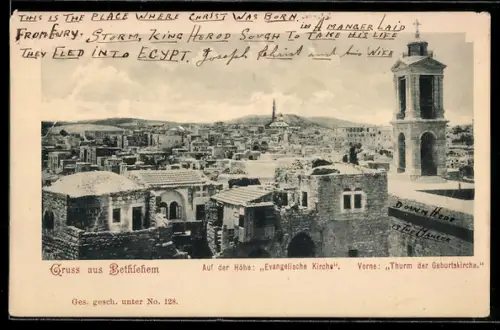 THIS IS THE PLACE WHERE CHRIST WAS BORN. IN A MANGER LAID
FROM FURY. STORM, KING HEROD SOUGH TO TAKE HIS LIFE
THEY FLED INTO EGYPT. Joseph Christ and his WIFE
DOWN HERE
Gruss aus Bethlehem
Auf der Höhe: „Evangelische Kirche“. Vorne: „Thurm der Geburtskirche.“
Ges. gesch. unter No. 128.